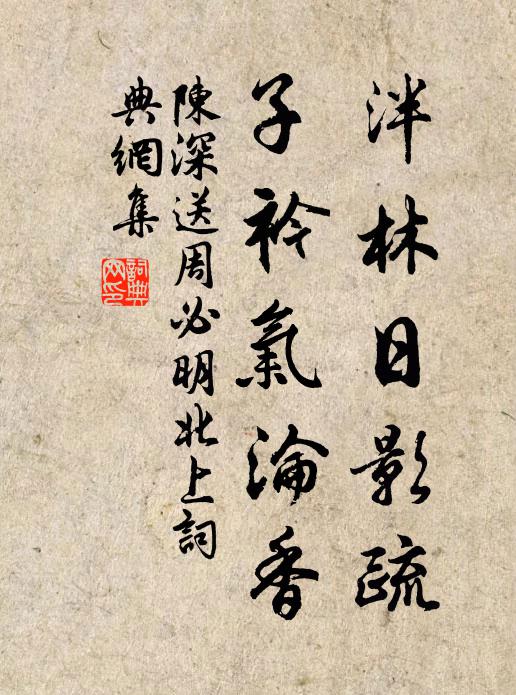 泮林日影疏
子衿氣淪香
陳深送周必明北上詞
典網集
詞典
网印